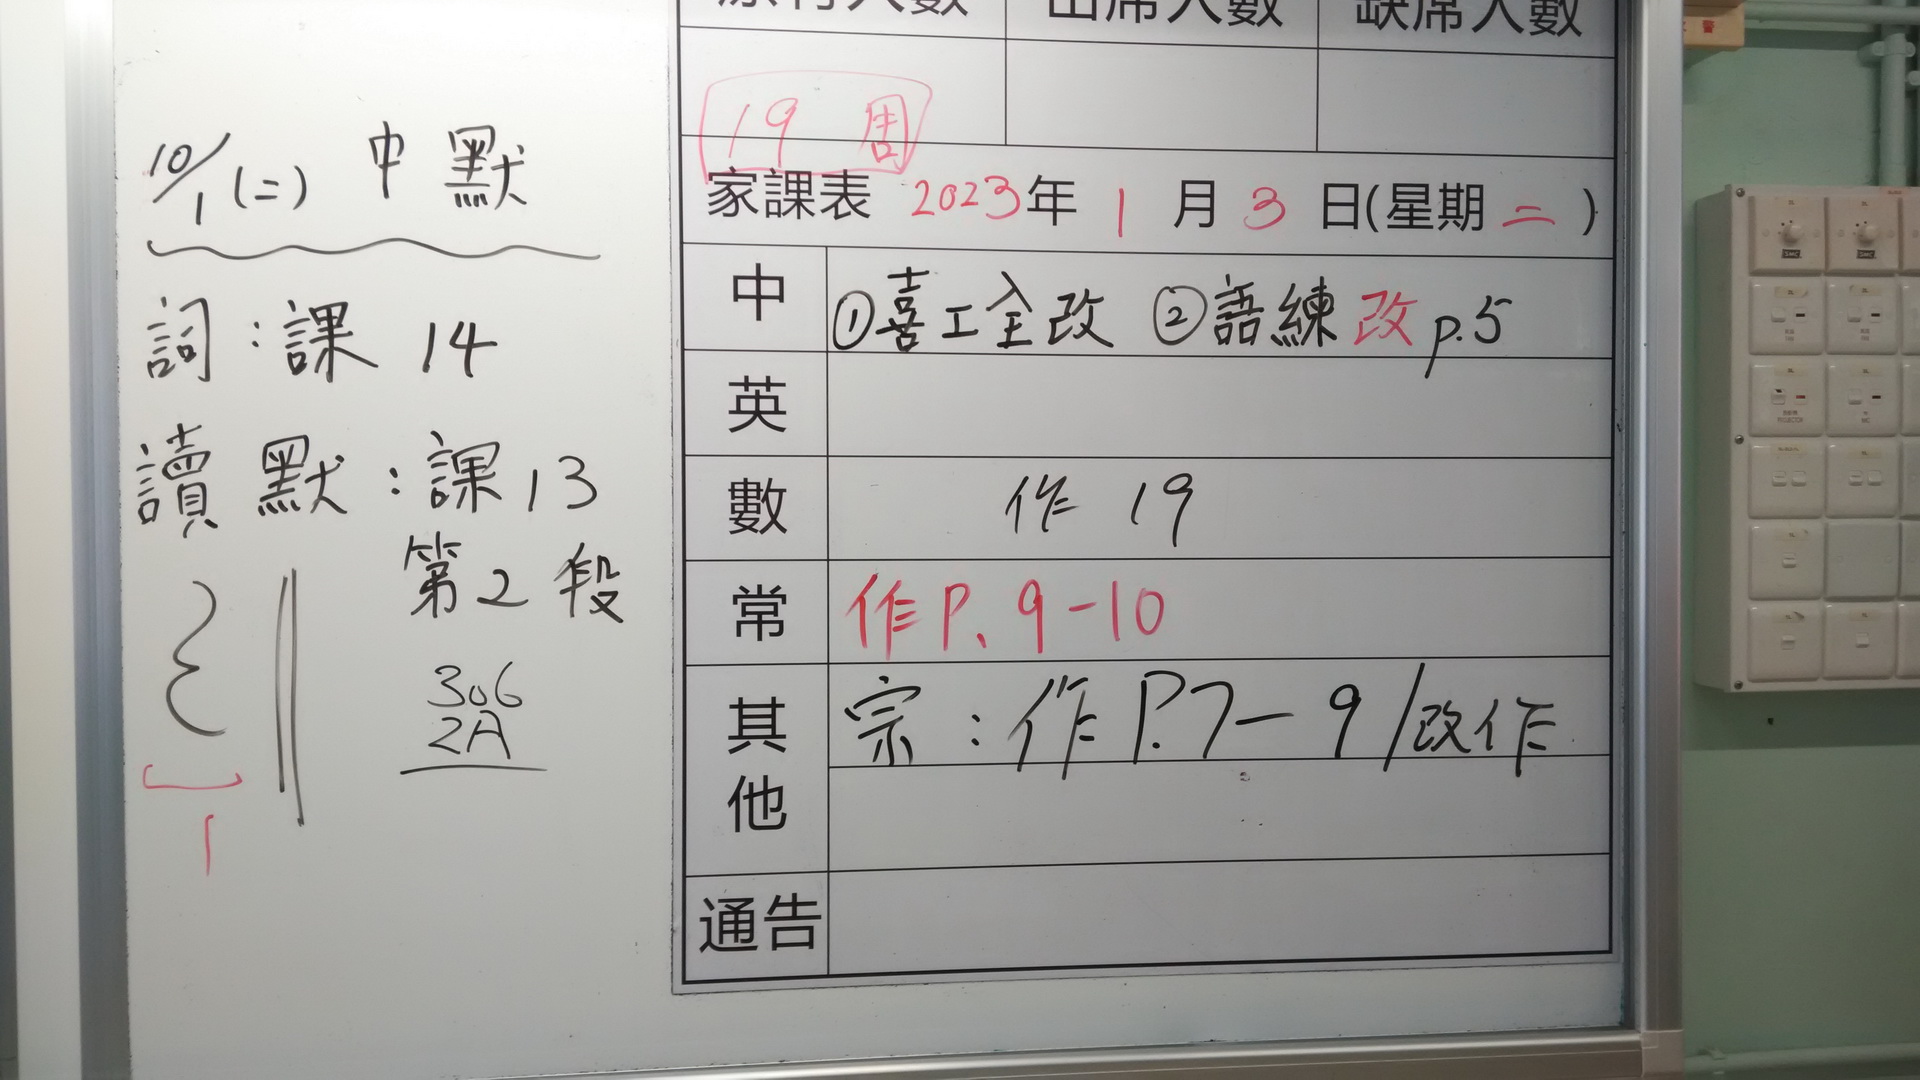 原有人數 出席人數 缺席人數
19 周
家課表 2023年 1 月 3 日(星期 二 )
中 ①喜工全改 ②語練改 p.5
英
數 作 19
常 作 P. 9-10
其他 宗：作 P.7-9/改作
通告
10/1 (二) 中 默
詞：課 14
讀 默：課 13
第 2 段
306
2A
1